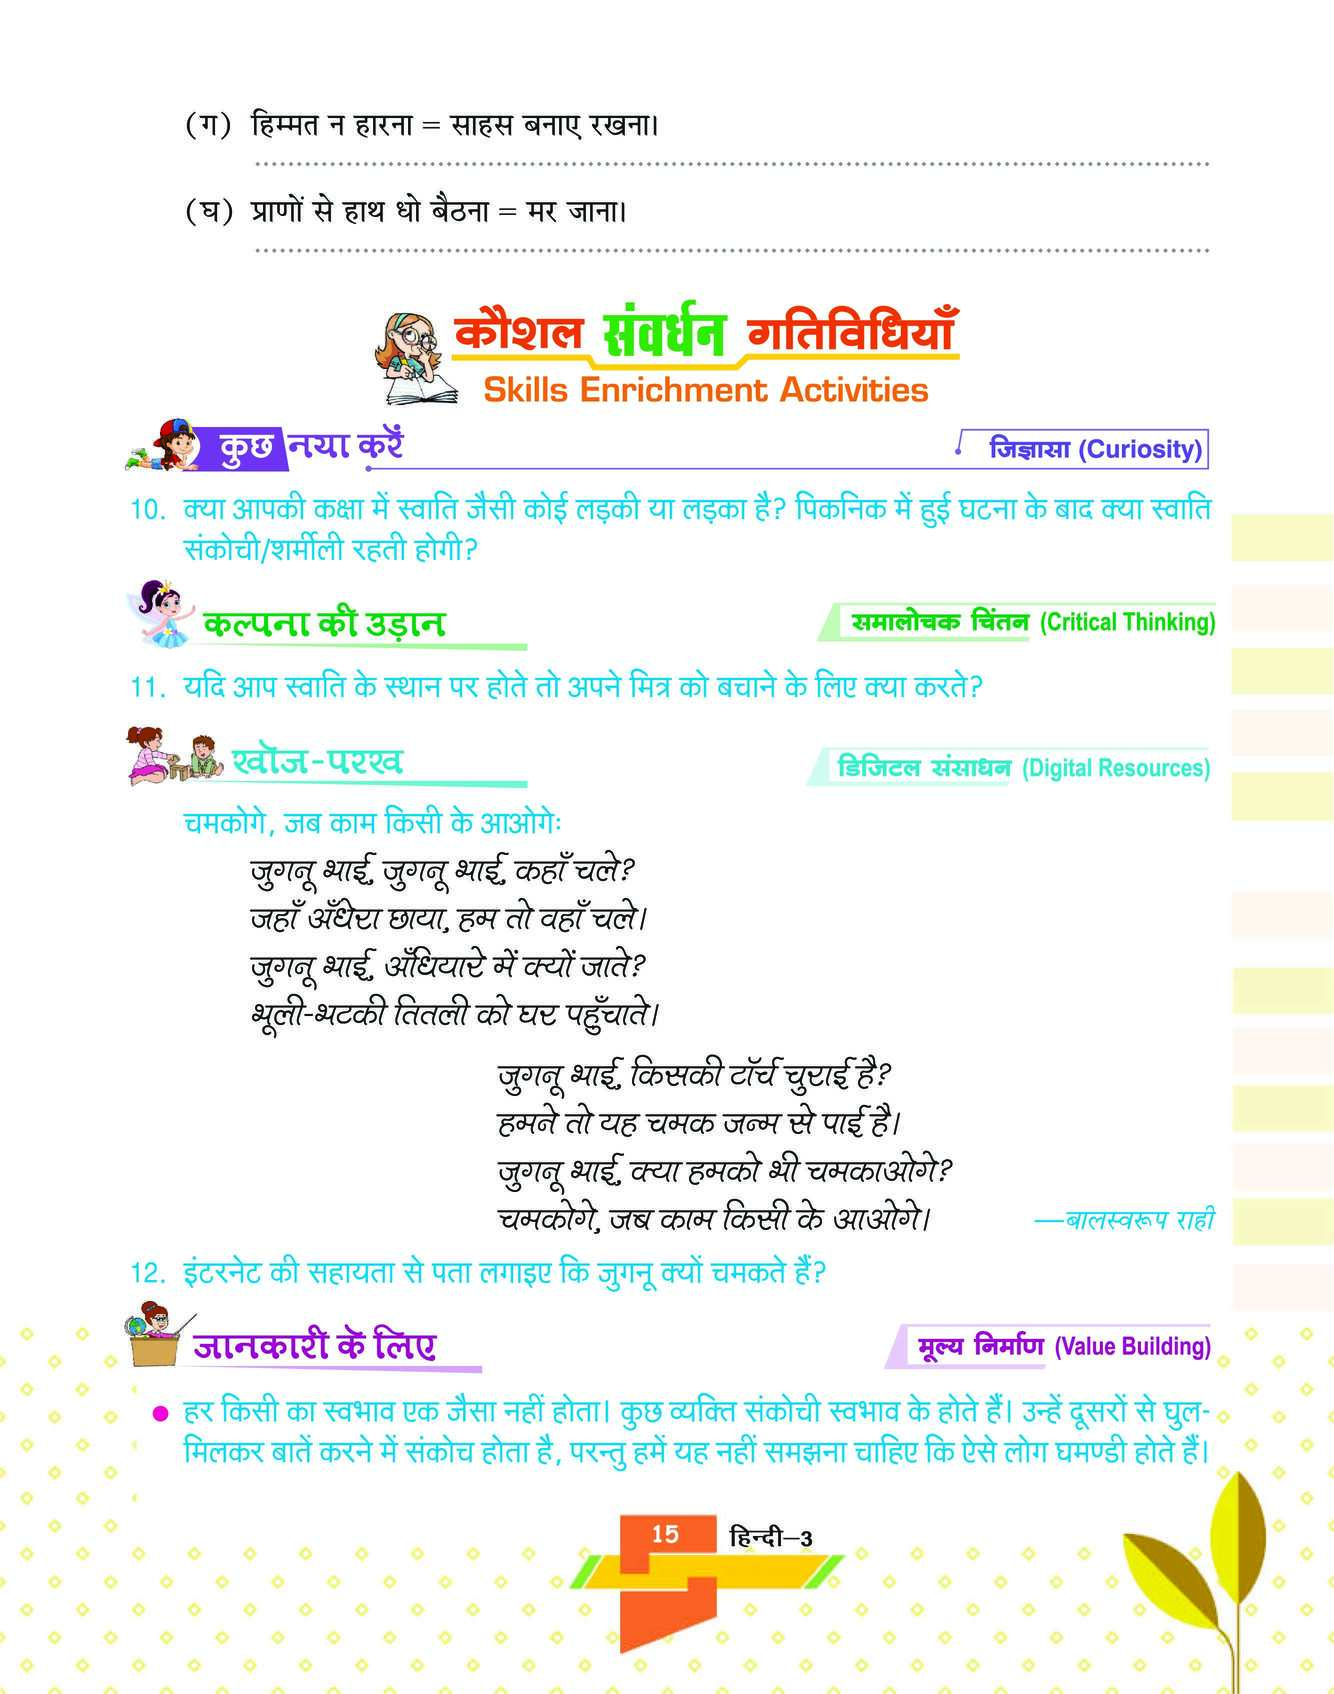 (ग) हिम्मत न हारना = साहस बनाए रखना।
(घ) प्राणों से हाथ धो बैठना = मर जाना।
कौशल संवर्धन गतिविधियाँ
Skills Enrichment Activities
कुछ नया करें
जिज्ञासा (Curiosity)
10. क्या आपकी कक्षा में स्वाति जैसी कोई लड़की या लड़का है? पिकनिक में हुई घटना के बाद क्या स्वाति
संकोची/शर्मीली रहती होगी?
कल्पना की उड़ान
समालोचक चिंतन (Critical Thinking)
11. यदि आप स्वाति के स्थान पर होते तो अपने मित्र को बचाने के लिए क्या करते?
खोज-परख
डिजिटल संसाधन (Digital Resources)
चमकोगे, जब काम किसी के आओगेः
जुगनू भाई, जुगनू भाई, कहाँ चले?
जहाँ अँधेरा छाया, हम तो वहाँ चले।
जुगनू भाई, अँधियारे में क्यों जाते?
भूली-भटकी तितली को घर पहुँचाते।
जुगनू भाई, किसकी टॉर्च चुराई है?
हमने तो यह चमक जन्म से पाई है।
जुगनू भाई, क्या हमको भी चमकाओगे?
चमकोगे, जब काम किसी के आओगे।
—बालस्वरूप राही
12. इंटरनेट की सहायता से पता लगाइए कि जुगनू क्यों चमकते हैं?
जानकारी के लिए
मूल्य निर्माण (Value Building)
● हर किसी का स्वभाव एक जैसा नहीं होता। कुछ व्यक्ति संकोची स्वभाव के होते हैं। उन्हें दूसरों से घुल-
मिलकर बातें करने में संकोच होता है, परन्तु हमें यह नहीं समझना चाहिए कि ऐसे लोग घमण्डी होते हैं।
15 हिन्दी–3